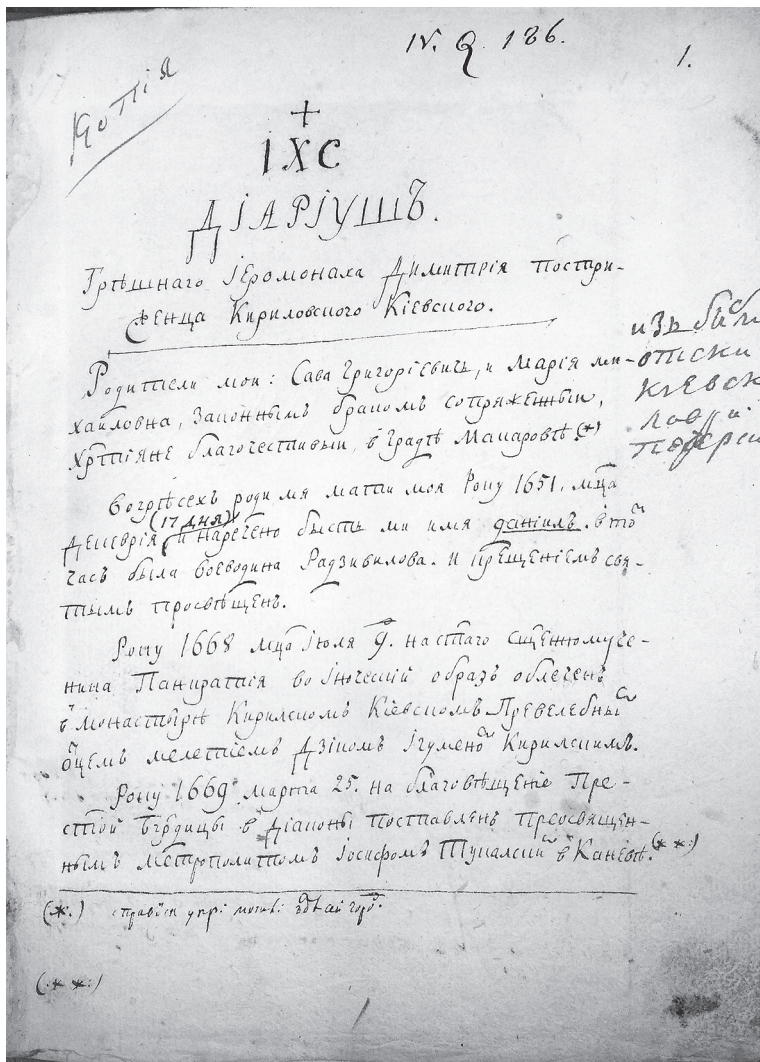 IV. Q. 186.
1.
Копія
+
ІХС
ДІАРІУШЪ.
Грѣшнаго Іеромонаха Димитрія постри-
женца Кириловского Кіевского.
Родители мои: Сава Григоріевичъ, и Марія ми-
хайловна, Законнымъ бракомъ сопряженныи,
Хр҃тіяне благочестивыи, в градѣ Макаровѣ.(*)
изъ биб
отеки
Кіевск
лавр
Печерск
Во грѣсехъ роди мя мати моя Року 1651. мц҃а
Декеврія (17 дня) и наречено бысть ми имя даніилъ. в то
часъ была воеводина Радзивилова. и крещеніемъ свя-
тымъ просвѣщенъ.
Року 1668 мц҃а Іюля 9. на ст҃аго сщ҃енномуче-
ника Панкратія во Іноческій образъ облеченъ
в монастырѣ Кирилском Кіевском Превелебный
ѡц҃емъ мелетіемъ Дзіком Ігумено Кирилскимъ.
Року 1669 марта 25. на благовѣщеніе Пре-
ст҃ой Бг҃родицы в Діаконы поставленъ преосвящен-
нымъ метрополитомъ Іосифомъ Тукалский в Каневѣ.(**)
(*.)
(.**.)